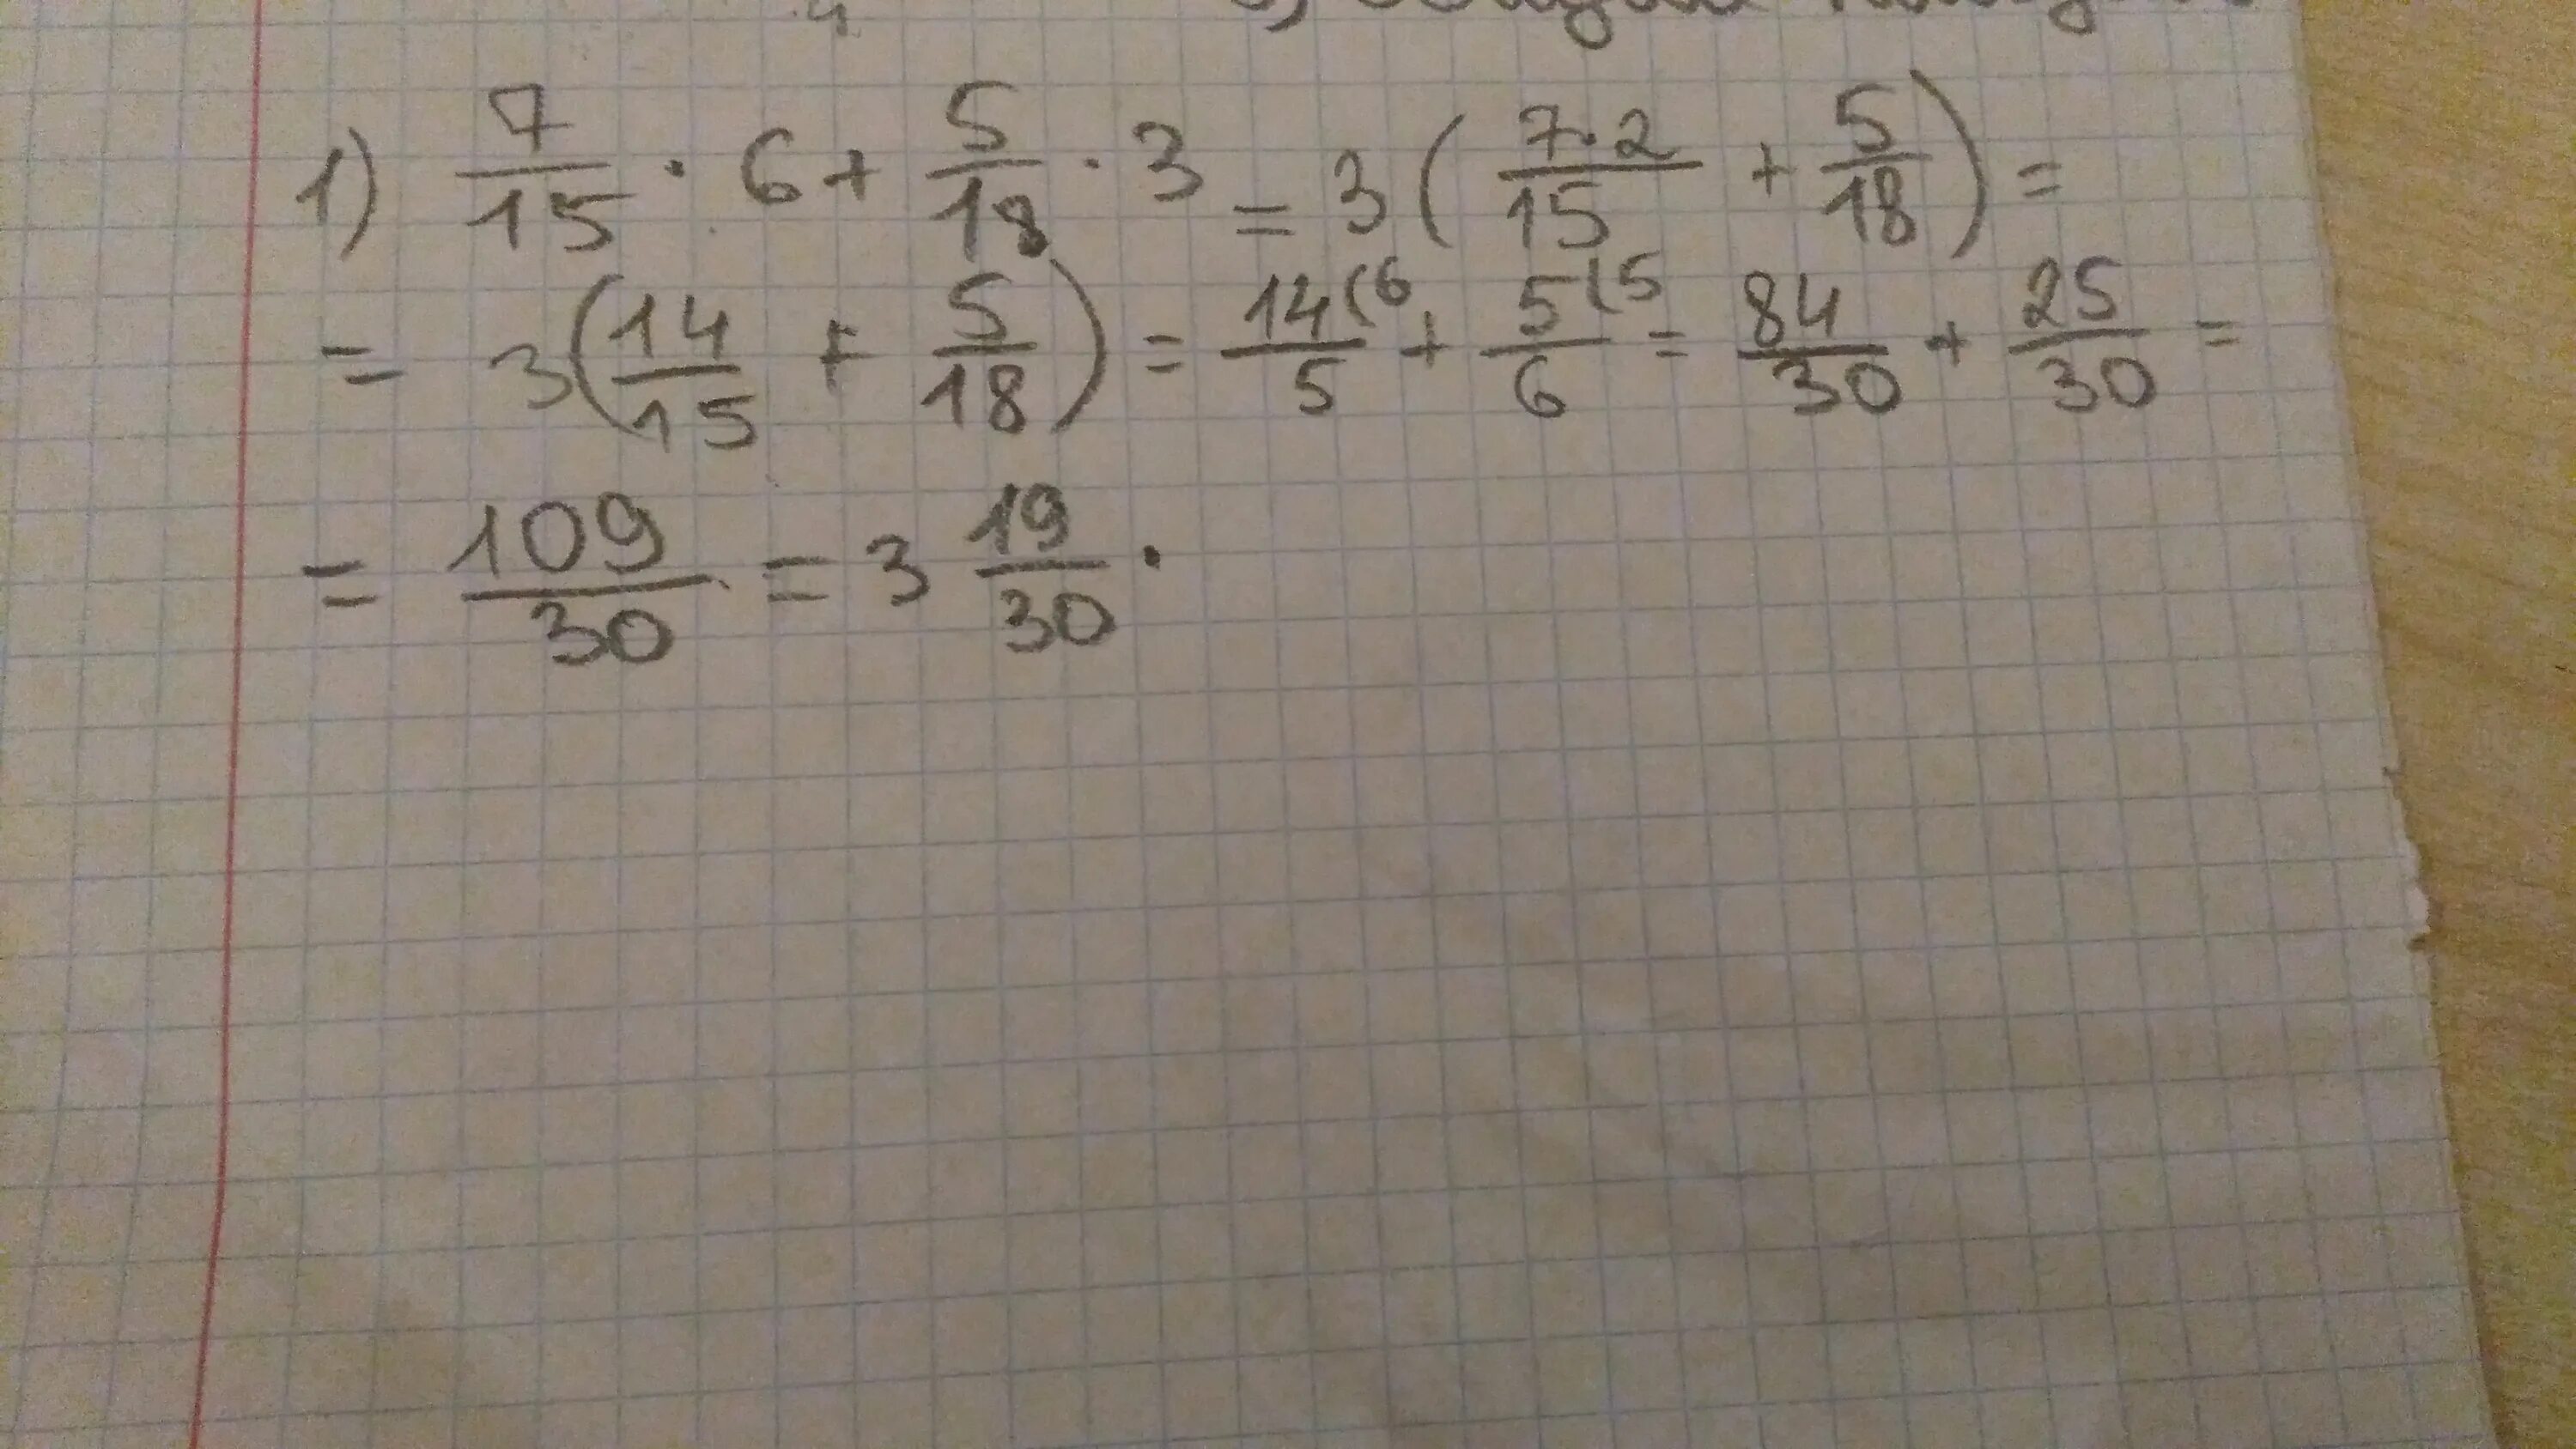 1) 7/15 · 6 + 5/18 · 3 = 3 ( 7·2/15 + 5/18 ) =
= 3 ( 14/15 + 5/18 ) = 14(6/5 + 5(5/6 = 84/30 + 25/30 =
= 109/30 = 3 19/30 .